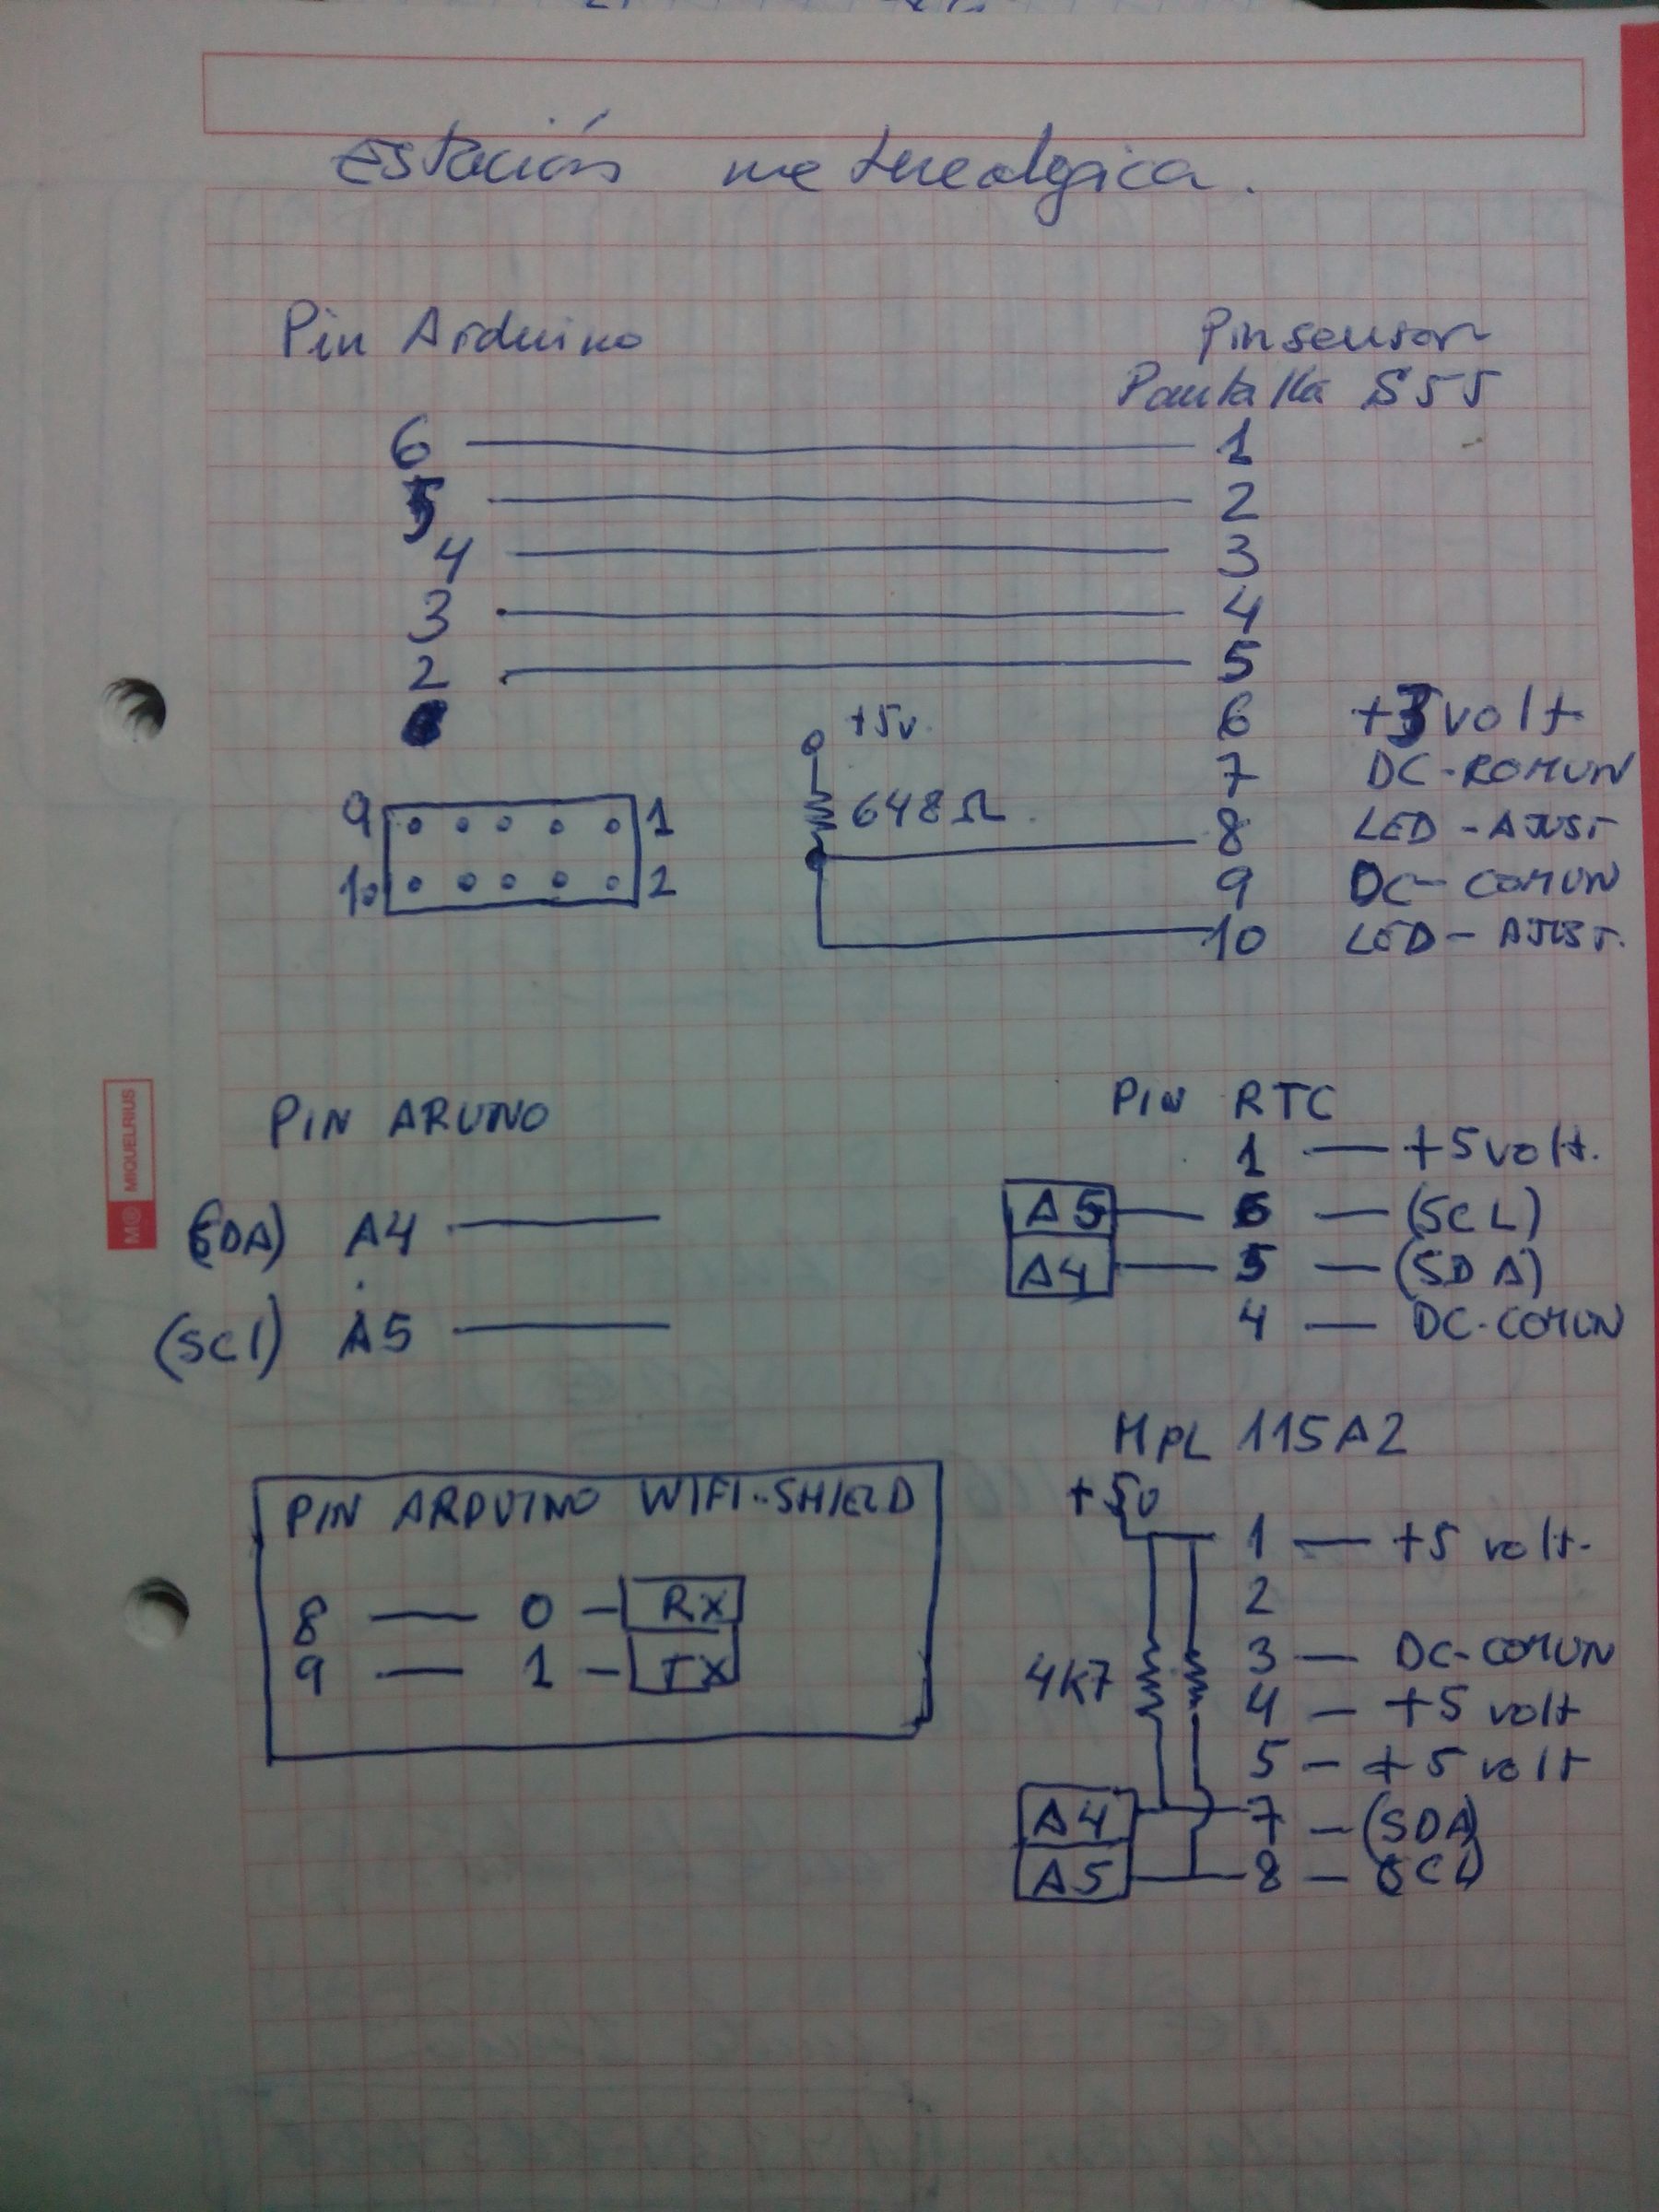 Estación metereologica.
Pin Arduino
Pin sensor
Pantalla S55
6 1
5 2
4 3
3 4
2 5
+5v. 6 +3volt
7 DC-ROMUN
9 1 648Ω. 8 LED-AJUST
10 2 9 DC-COMUN
10 LED-AJUST.
PIN ARUNO
PIN RTC
1 +5volt.
(SDA) A4
A5 6 (SCL)
A4 5 (SDA)
(SCl) A5
4 DC-COMUN
MPL 115A2
PIN ARDUINO WIFI-SHIELD
+5v
1 +5 volt.
8 0 Rx
2
9 1 TX
3 DC-COMUN
4K7 4 +5 volt
5 +5 volt
A4 7 (SDA)
A5 8 SCL)
M® MIQUELRIUS